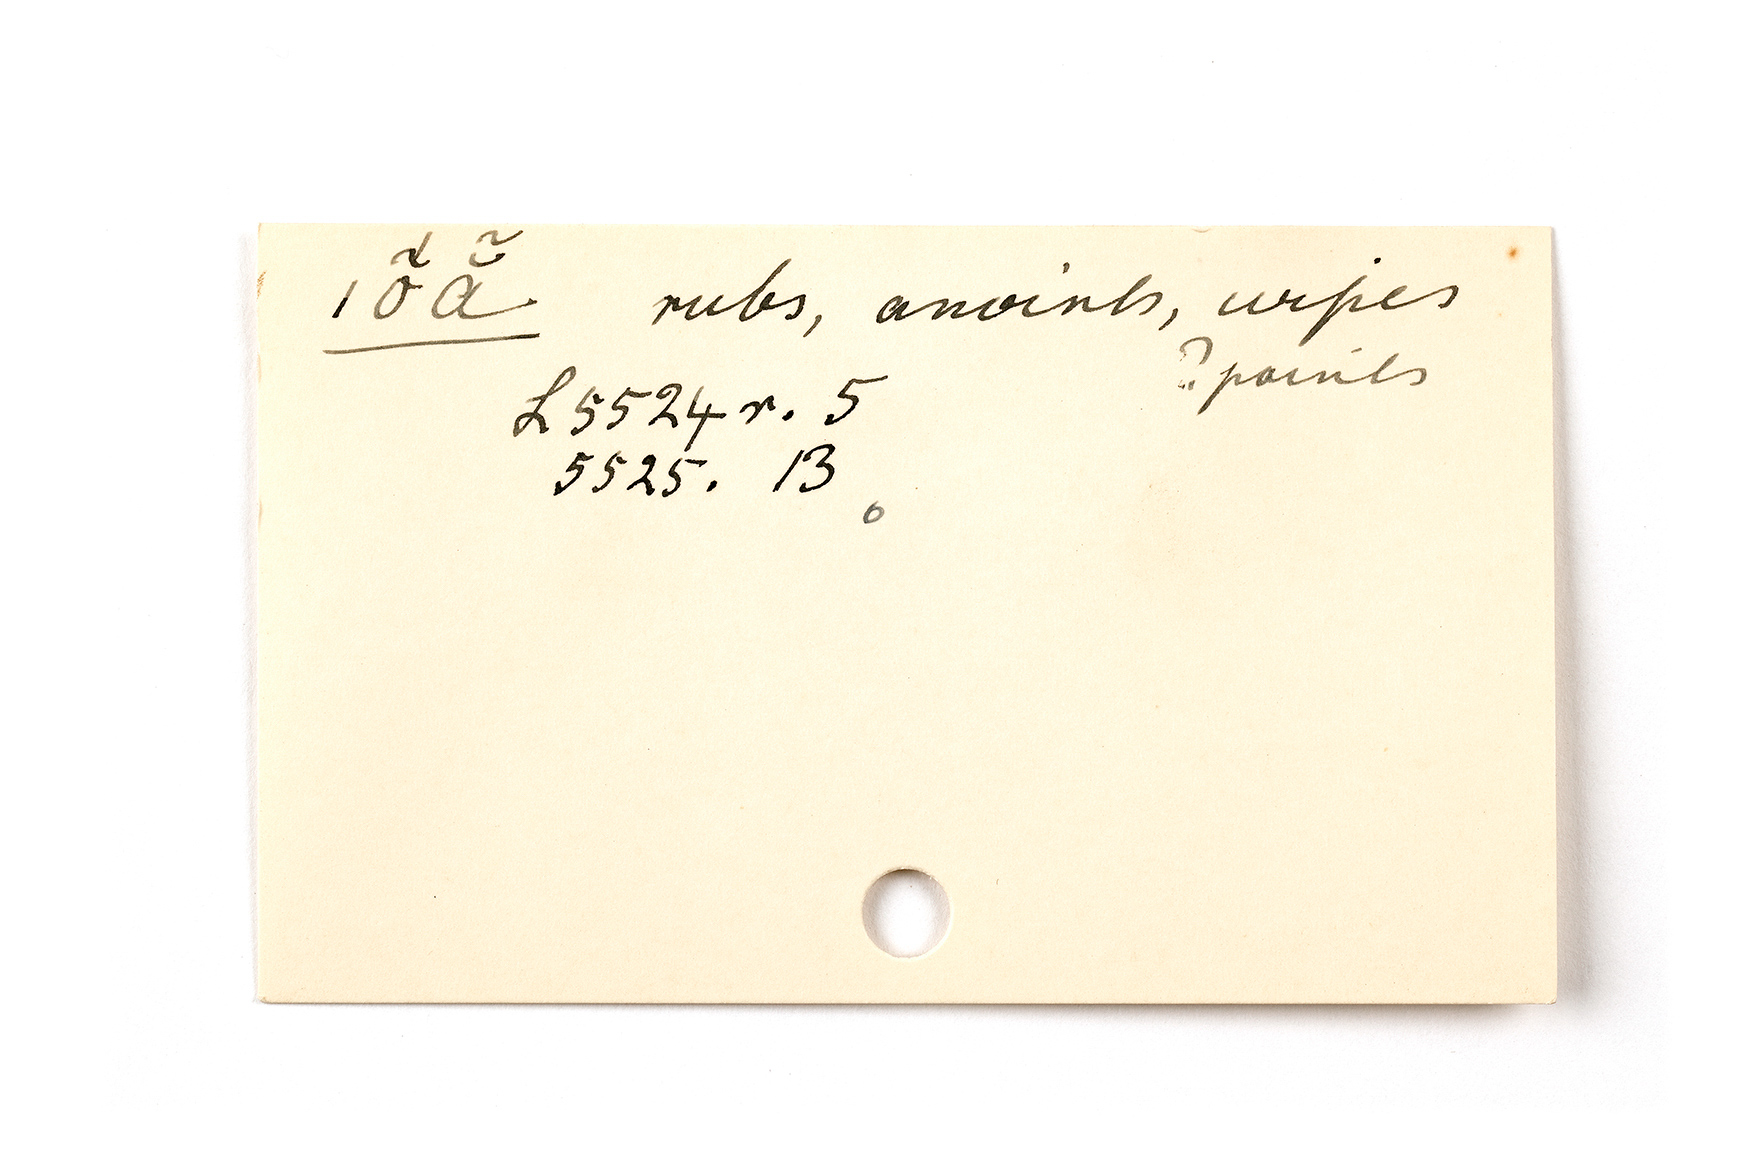 1 õ ã rubs, anoints, wipes
? paints
L 5524 r. 5
5525. 13
o